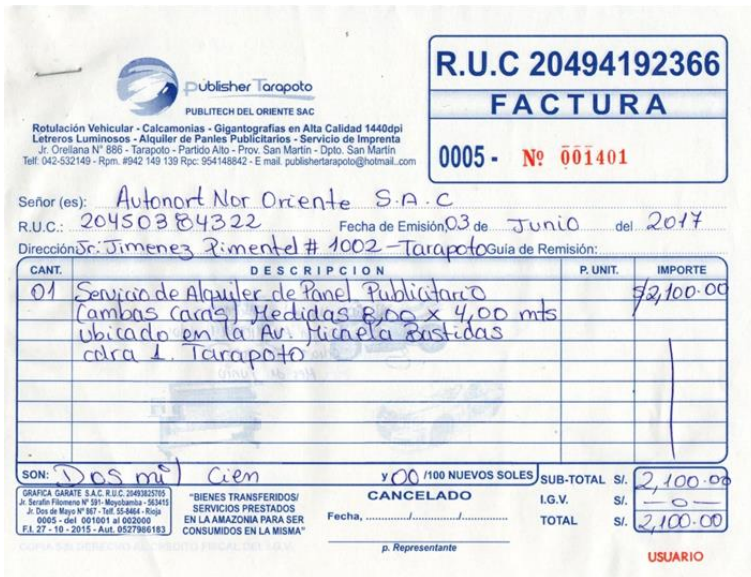 Publisher Tarapoto
PUBLITECH DEL ORIENTE SAC
Rotulación Vehicular - Calcamonias - Gigantografias en Alta Calidad 1440dpi
Letreros Luminosos - Alquiler de Panles Publicitarios - Servicio de Imprenta
Jr. Orellana N° 886 - Tarapoto - Partido Alto - Prov. San Martin - Dpto. San Martin
Telf: 042-532149 - Rpm. #942 149 139 Rpc: 954148842 - E mail. publishertarapoto@hotmail.com
R.U.C 20494192366
FACTURA
0005 - Nº 001401
Señor (es): Autonort Nor Oriente S.A.C
R.U.C.: 20450384322 Fecha de Emisión, 03 de Junio del 2017
Dirección Jr: Jimenez Pimentel # 1002 - Tarapoto Guia de Remisión:
CANT. DESCRIPCION P. UNIT. IMPORTE
01 Servicio de Alquiler de Panel Publicitario S/2,100.00
(ambas caras) Medidas 8,00 x 4,00 mts
ubicado en la Av. Micaela Bastidas
cdra 1. Tarapoto
SON: Dos mil Cien y 00 /100 NUEVOS SOLES
SUB-TOTAL S/. 2,100.00
I.G.V. S/. -0-
TOTAL S/. 2,100.00
GRAFICA GARATE S.A.C. R.U.C. 20493825705
Jr. Serafin Filomeno Nº 591- Moyobamba - 563415
Jr. Dos de Mayo Nº 867 - Telf. 55-8464 - Rioja
0005 - del 001001 al 002000
F.I. 27 - 10 - 2015 - Aut. 0527986183
"BIENES TRANSFERIDOS/
SERVICIOS PRESTADOS
EN LA AMAZONIA PARA SER
CONSUMIDOS EN LA MISMA"
CANCELADO
Fecha, ......../......../........
p. Representante
COPIA SIN DERECHO A CREDITO FISCAL DEL I.G.V.
USUARIO